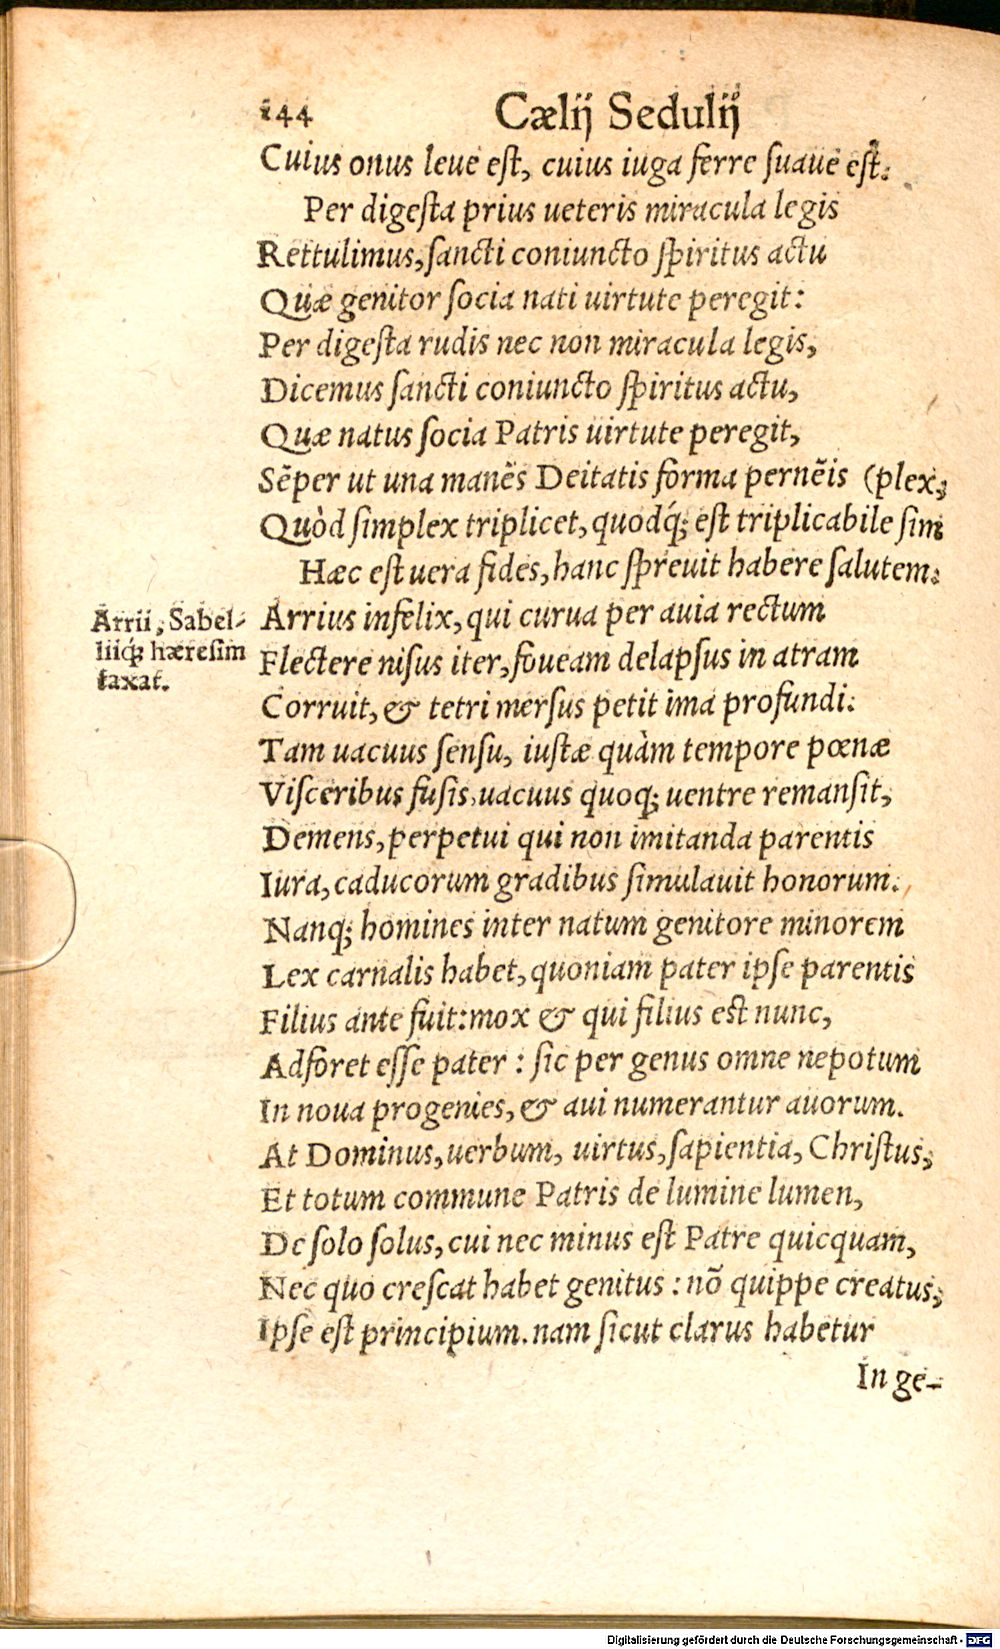 144 Cælij Sedulij
Cuius onus leue eſt, cuius iuga ferre ſuaue eſt.
Per digeſta prius ueteris miracula legis
Rettulimus, ſancti coniuncto ſpiritus actu
Quæ genitor ſocia nati uirtute peregit:
Per digeſta rudis nec non miracula legis,
Dicemus ſancti coniuncto ſpiritus actu,
Quæ natus ſocia Patris uirtute peregit,
Sẽper ut una manẽs Deitatis forma pernẽis (plex,
Quòd ſimplex triplicet, quodq́; eſt triplicabile ſim
Hæc eſt uera fides, hanc ſpreuit habere ſalutem.
Arrii, Sabel-
liiq́; hæresim
taxat.
Arrius infelix, qui curua per auia rectum
Flectere niſus iter, foueam delapſus in atram
Corruit, & tetri merſus petit ima profundi:
Tam uacuus ſenſu, iuſtæ quàm tempore pœnæ
Viſceribus fuſis, uacuus quoq; uentre remanſit,
Demens, perpetui qui non imitanda parentis
Iura, caducorum gradibus ſimulauit honorum.
Nanq; homines inter natum genitore minorem
Lex carnalis habet, quoniam pater ipſe parentis
Filius ante fuit: mox & qui filius eſt nunc,
Adforet eſſe pater: ſic per genus omne nepotum
In noua progenies, & aui numerantur auorum.
At Dominus, uerbum, uirtus, ſapientia, Chriſtus,
Et totum commune Patris de lumine lumen,
De ſolo ſolus, cui nec minus eſt Patre quicquam,
Nec quo creſcat habet genitus: nõ quippe creatus,
Ipſe eſt principium. nam ſicut clarus habetur
In ge-
Digitalisierung gefördert durch die Deutsche Forschungsgemeinschaft - DFG